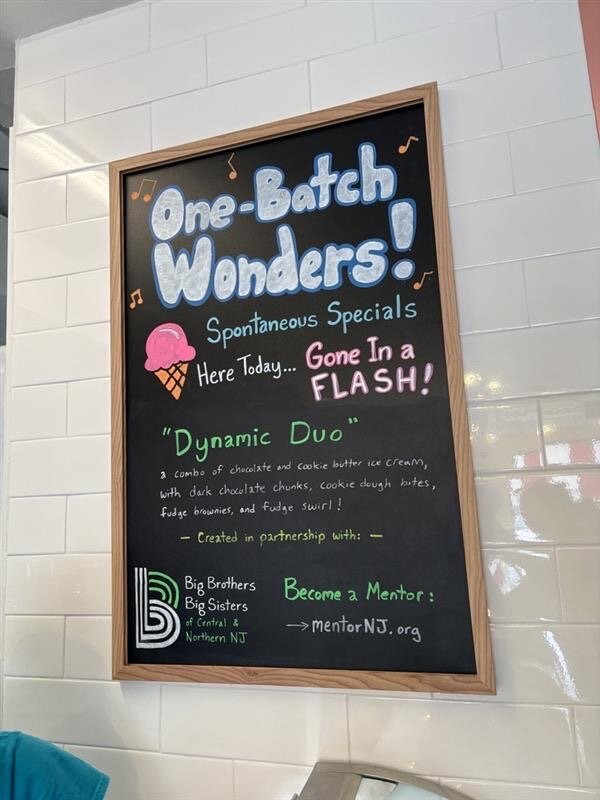 One-Batch
Wonders!
Spontaneous Specials
Here Today... Gone In a
FLASH!
"Dynamic Duo"
a combo of chocolate and cookie butter ice cream,
with dark chocolate chunks, cookie dough bites,
fudge brownies, and fudge swirl!
— Created in partnership with: —
Big Brothers
Big Sisters
of Central &
Northern NJ
Become a Mentor:
→ mentorNJ.org